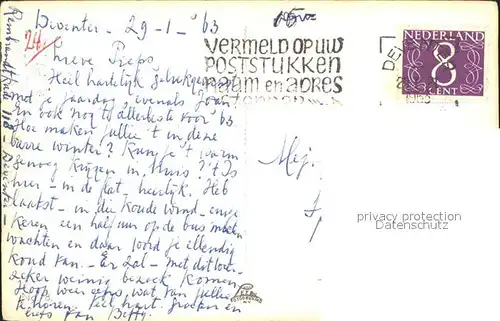 Deventer - 29-1-'63
24.
Lieve Pieps
Heil hartelijk gefeliciteerd
met je jaardag, evenals Joan
En ook nog 't allerbeste voor '63
Hoe maken jullie 't in deze
barre winter? Kun je 't warm
genoeg krijgen in thuis? 't Is
hier - in de flat, heerlijk. Heb
laatst - in die koude wind - enige
keren een half uur op de bus moeten
wachten en daar word je ellendig
koud van. - Er zal - met dit weer -
zeker weinig bezoek komen
Hoop weer eens wat van jullie
te horen. Veel hart. groeten en
liefs van Betty.
Rembrandtkade 118 - Deventer -
VERMELD OP UW
POSTSTUKKEN
naam en adres
DEVENTER
1963
NEDERLAND
8
CENT
Mej.
privacy protection
Datenschutz